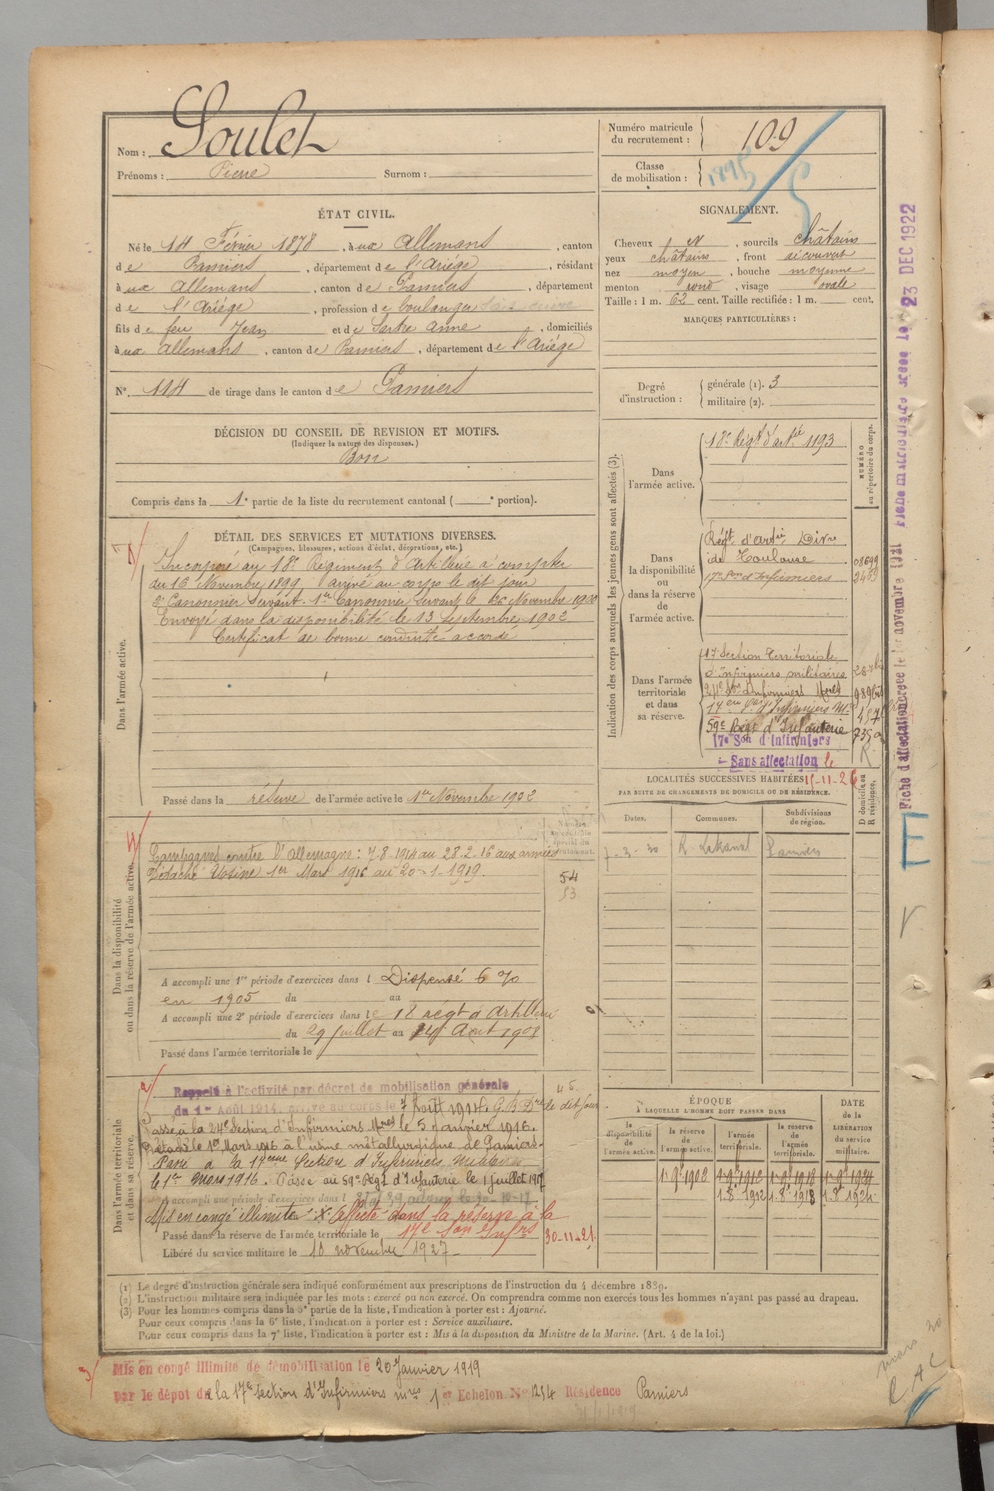 Nom : Soulet
Prénoms : Pierre Surnom :
Numéro matricule du recrutement : 109
Classe de mobilisation : 1895
ÉTAT CIVIL.
Né le 14 Février 1878, à ux Allemans, canton
de Pamiers, département de l'Ariège, résidant
à ux Allemans, canton de Pamiers, département
de l'Ariège, profession de boulanger
fils de feu Jean et de Sartre Anne, domiciliés
à ux Allemans, canton de Pamiers, département de l'Ariège
N° 114 de tirage dans le canton de Pamiers
SIGNALEMENT.
Cheveux et, sourcils châtains
yeux châtains, front découvert
nez moyen, bouche moyenne
menton rond, visage ovale
Taille : 1 m. 62 cent. Taille rectifiée : 1 m. cent.
MARQUES PARTICULIÈRES :
Degré d'instruction :
générale (1). 3
militaire (2).
DÉCISION DU CONSEIL DE REVISION ET MOTIFS.
(Indiquer la nature des dispenses.)
Bon
Compris dans la 1e partie de la liste du recrutement cantonal ( e portion).
DÉTAIL DES SERVICES ET MUTATIONS DIVERSES.
(Campagnes, blessures, actions d'éclat, décorations, etc.)
Dans l'armée active.
Incorporé au 18e Régiment d'Artillerie à compter
du 16 Novembre 1899 arrivé au corps le dit jour
2e Canonnier servant. 1er Canonnier servant le 26 Novembre 1900
Envoyé dans la disponibilité le 13 Septembre 1902
Certificat de bonne conduite accordé
Passé dans la réserve de l'armée active le 1er Novembre 1902
Indication des corps auxquels les jeunes gens sont affectés (3).
NUMÉRO au répertoire du corps.
Dans l'armée active.
18e Régt d'artie 1193
Dans la disponibilité ou dans la réserve de l'armée active.
Régt d'artie Dire
de Toulouse
17e Son d'Infirmiers
Dans l'armée territoriale et dans sa réserve.
17 Section Territoriale
d'Infirmiers militaires
59e Régt d'Infanterie 7350
17e Son d'Infirmiers
Sans affectation le
11-11-26
LOCALITÉS SUCCESSIVES HABITÉES
PAR SUITE DE CHANGEMENTS DE DOMICILE OU DE RÉSIDENCE.
D domicile ou R résidence.
Dates. Communes. Subdivisions de région.
7-3-30 R. Lakanal Pamiers
Dans la disponibilité ou dans la réserve de l'armée active.
Campagnes contre l'Allemagne : 7-8-1914 au 28-2-16 aux armées
Détaché Usine 1er Mars 1916 au 20-1-1919.
54
53
A accompli une 1re période d'exercices dans l Dispensé 6 %
en 1905 du au
A accompli une 2e période d'exercices dans le 18 régt d'Artillerie
du 29 juillet au 14 Août 1908
Passé dans l'armée territoriale le
Dans l'armée territoriale et dans sa réserve.
Rappelé à l'activité par décret de mobilisation générale
du 1er Août 1914. arrivé au corps le 7 Août 1914. le dit jour
Passé à la 24e Section d'Infirmiers Mres le 5 janvier 1916.
Détaché le 1er Mars 1916 à l'usine métallurgique de Pamiers.
Passé à la 17eme Section d'Infirmiers Militaires
le 1er Mars 1916. Passé au 59e Régt d'Infanterie le 1 juillet 1917
A accompli une période d'exercices dans l
Mis en congé illimité X Affecté dans la réserve à la
Passé dans la réserve de l'armée territoriale le 17e Son Infrs 30-11-21.
Libéré du service militaire le 10 novembre 1927
ÉPOQUE
A LAQUELLE L'HOMME DOIT PASSER DANS
DATE de la LIBÉRATION du service militaire.
la disponibilité de l'armée active. la réserve de l'armée active. l'armée territoriale. la réserve de l'armée territoriale.
1-9bre-1902 1-9bre-1912 1-9bre-1918 1-9bre-1924
1-8-1912 1-8-1918 1-8-1924
(1) Le degré d'instruction générale sera indiqué conformément aux prescriptions de l'instruction du 4 décembre 1889.
(2) L'instruction militaire sera indiquée par les mots : exercé ou non exercé. On comprendra comme non exercés tous les hommes n'ayant pas passé au drapeau.
(3) Pour les hommes compris dans la 5e partie de la liste, l'indication à porter est : Ajourné.
Pour ceux compris dans la 6e liste, l'indication à porter est : Service auxiliaire.
Pour ceux compris dans la 7e liste, l'indication à porter est : Mis à la disposition du Ministre de la Marine. (Art. 4 de la loi.)
Mis en congé illimité de démobilisation le 20 Janvier 1919
par le dépôt de la 17e section d'Infirmiers mres 1er Echelon No 1254 Résidence Pamiers
Fiche d'affectation créée le 1er novembre 1921 Fiche matriculaire créée le 23 DEC 1922